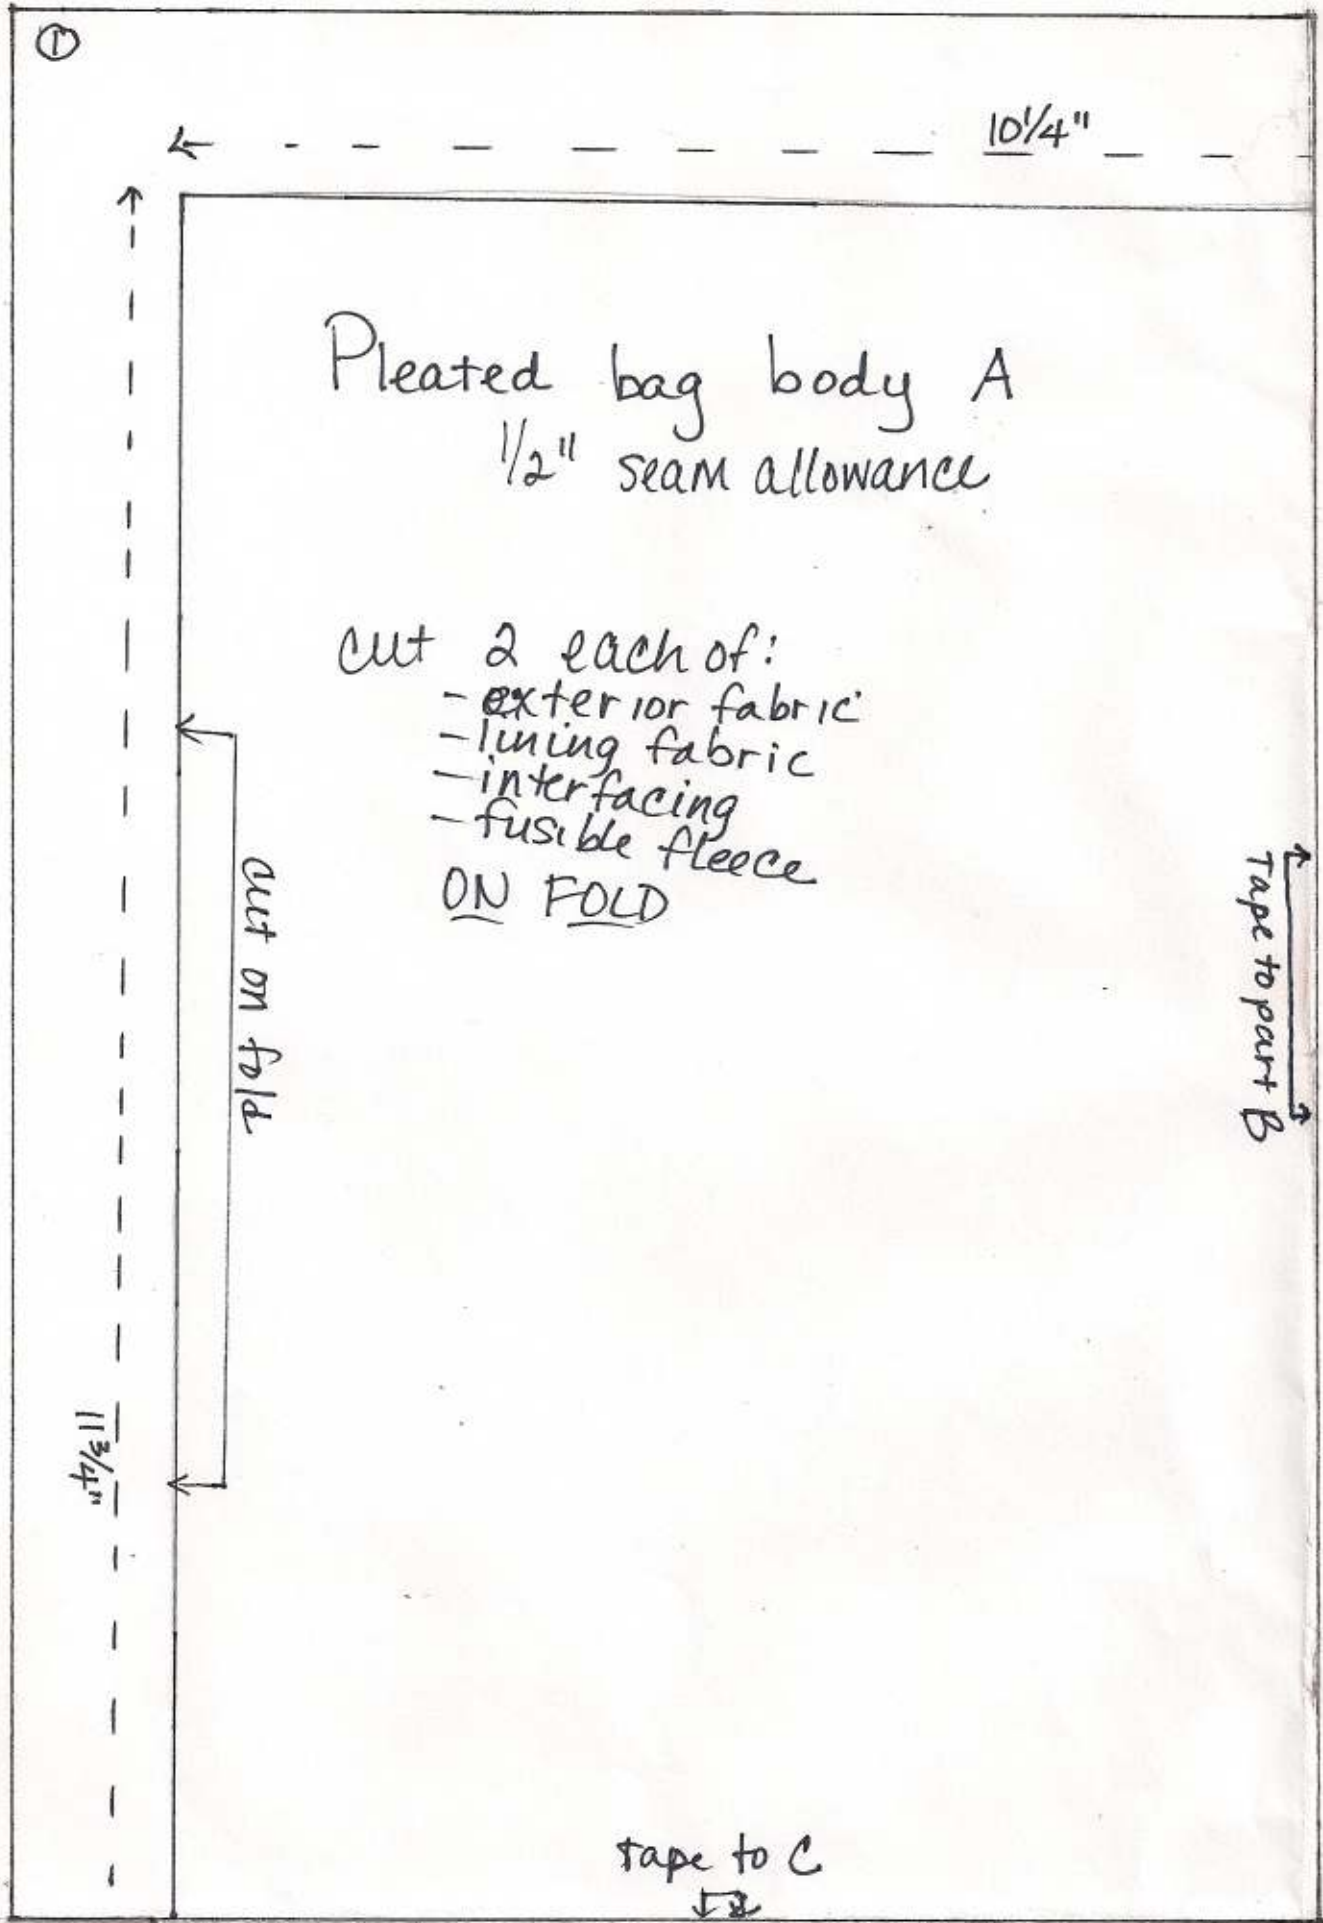 ①
10 1/4"
Pleated bag body A
1/2" seam allowance
cut 2 each of:
- exterior fabric
- lining fabric
- interfacing
- fusible fleece
ON FOLD
cut on fold
Tape to part B
11 3/4"
tape to C